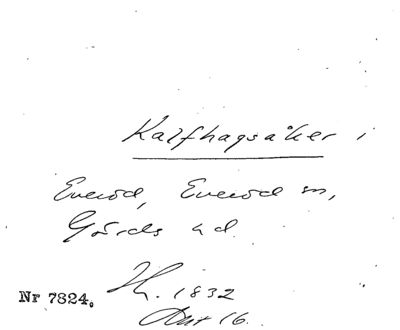 Kalfhagsåker i
Everöd, Everöd sn,
Gärds hd.
1832
Nr 7824.
Akt 16.